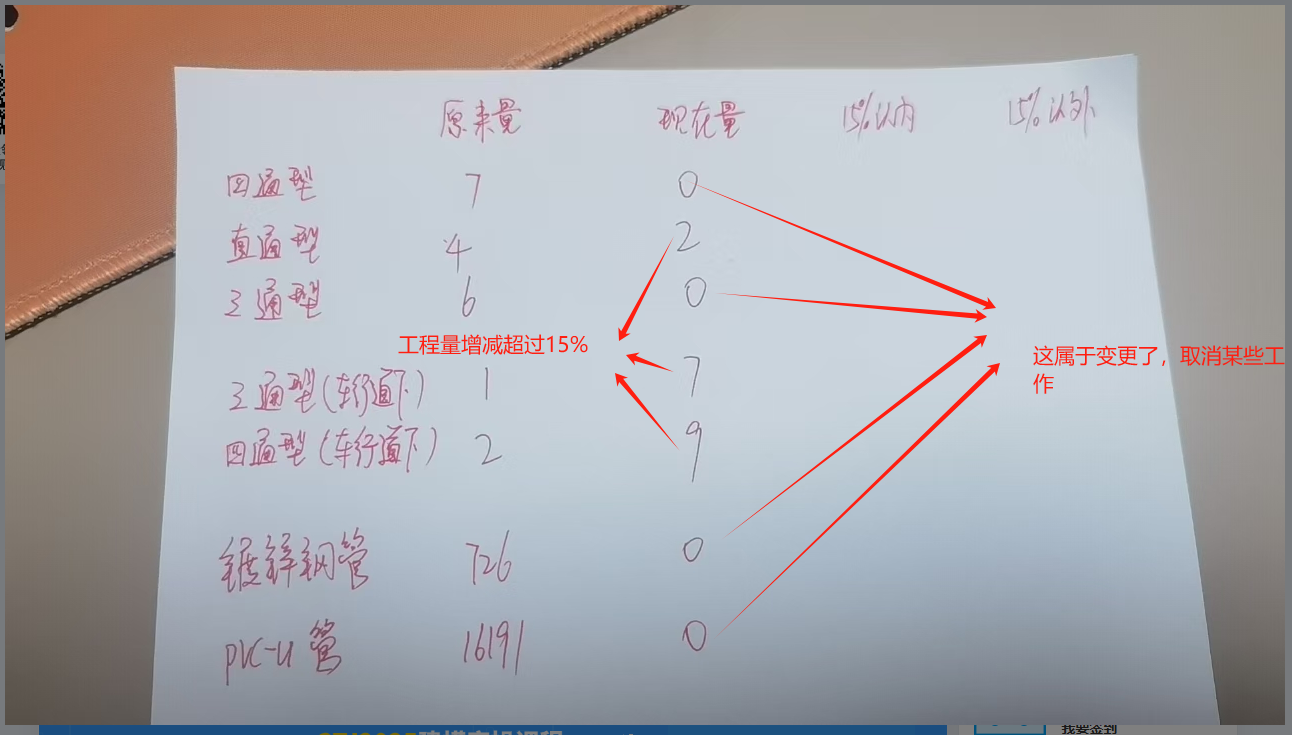 原来量 现在量 15%以内 15%以外
四通型 7 0
直通型 4 2
三通型 6 0
工程量增减超过15%
这属于变更了，取消某些工
作
三通型(车行道下) 1 7
四通型(车行道下) 2 9
镀锌钢管 726 0
PVC-U管 16191 0
我要签到